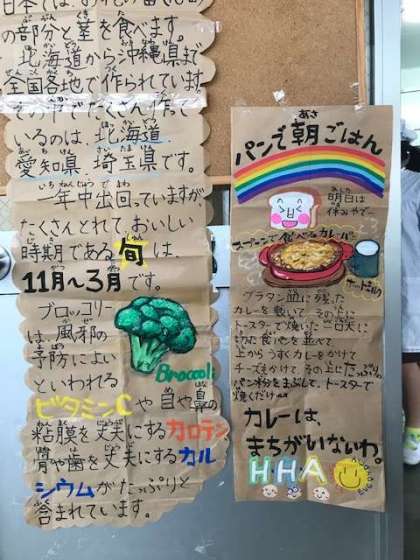 日本では、
の部分と茎を食べます。
北海道から沖縄県まで
全国各地で作られています。
その中でたくさん作って
いるのは、北海道、
愛知県、埼玉県です。
一年中出回っていますが、
たくさんとれて、おいしい
時期である旬は、
11月〜3月です。
ブロッコリー
は、風邪の
予防によい
といわれる
Broccoli
ビタミンCや目や鼻の
粘膜を丈夫にするカロテン、
骨や歯を丈夫にするカル
シウムがたっぷりと
含まれています。
パンで朝ごはん
明日は
休みやで〜
スプーンで食べるカレーパン
グラタン皿に残った
カレーを敷いて、その上に
トースターで焼いた一口大に
食パンを並べて
上からうすくカレーをかけて
チーズもかけて、その上にたっぷりの
パン粉をまぶして、トースターで
焼くだけ
カレーは、
まちがいないわ。
HHA